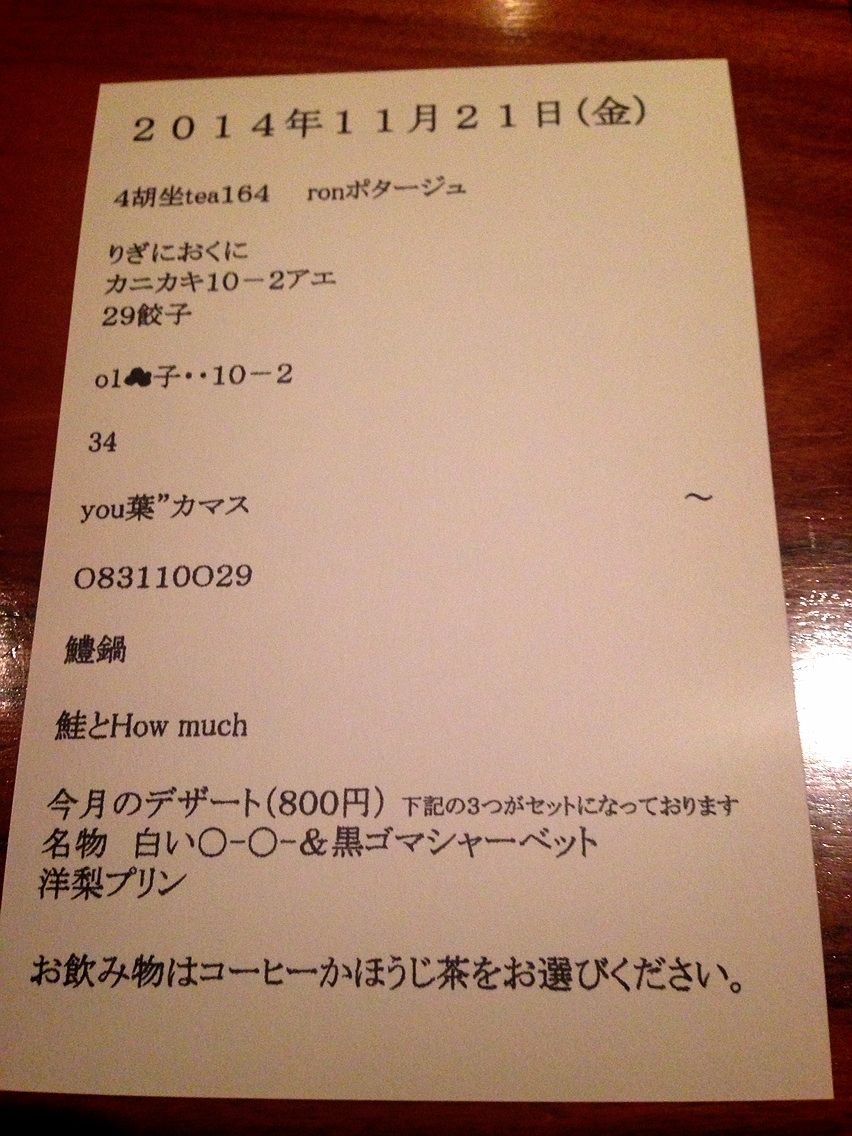 ２０１４年１１月２１日（金）
4胡坐tea164　ronポタージュ
りぎにおくに
カニカキ10－2アエ
29餃子
o1☁子・・10－2
34
you葉”カマス　～
O83110O29
鱧鍋
鮭とHow much
今月のデザート（800円）下記の3つがセットになっております
名物　白い〇-〇-＆黒ゴマシャーベット
洋梨プリン
お飲み物はコーヒーかほうじ茶をお選びください。